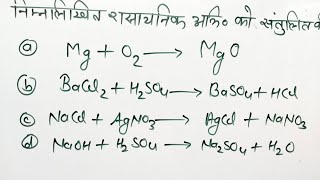 निम्नलिखित रासायनिक अभि० को संतुलित
(a) Mg + O₂ → MgO
(b) BaCl₂ + H₂SO₄ → BaSO₄ + HCl
(c) NaCl + AgNO₃ → AgCl + NaNO₃
(d) NaOH + H₂SO₄ → Na₂SO₄ + H₂O